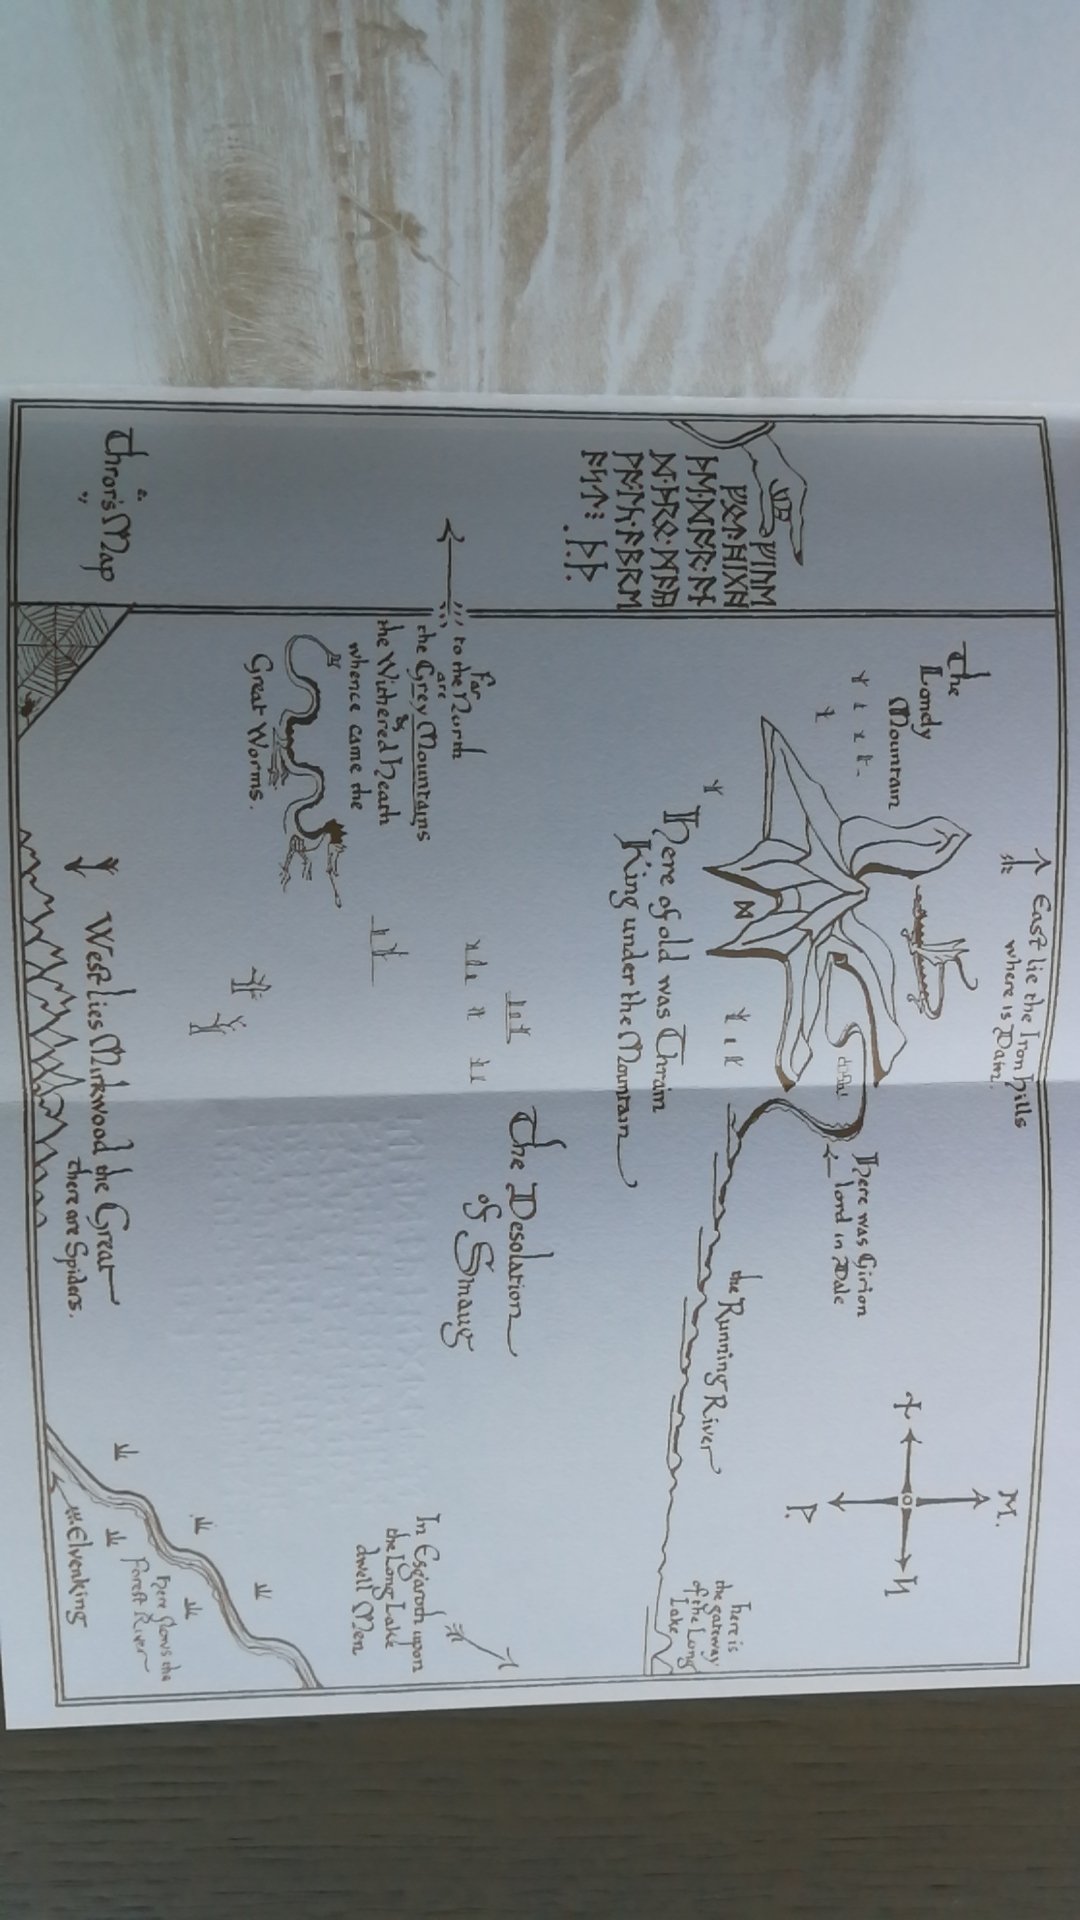 ᚠᛁᚢᛖ
ᚠᛟᛏ᛫ᚻᛁᚷᚻ
ᚦᛖ᛫ᛞᚩᚱ᛫ᚪᚾ
ᛞ᛫ᚦᚱᛟ᛫ᛗᚪᚣ
ᚹᚪᛚᚳ᛫ᚪᛒᚱᛖ
ᚪᛋᛏ᛬ ᚦ᛫ᚦ᛫
Thror's Map
East lie the Iron Hills
where is Dain.
The
Lonely
Mountain
ᛞ
Here of old was Thrain
King under the Mountain
Here was Girion
lord in Dale
the Running River
M.
P.
here is
the gateway
of the Long
Lake
Far
to the North
are
the Grey Mountains
&
the Withered Heath
whence came the
Great Worms.
The Desolation
of Smaug
In Esgaroth upon
the Long Lake
dwell Men
West lies Mirkwood the Great
there are Spiders.
Here flows the
Forest River
Elvenking